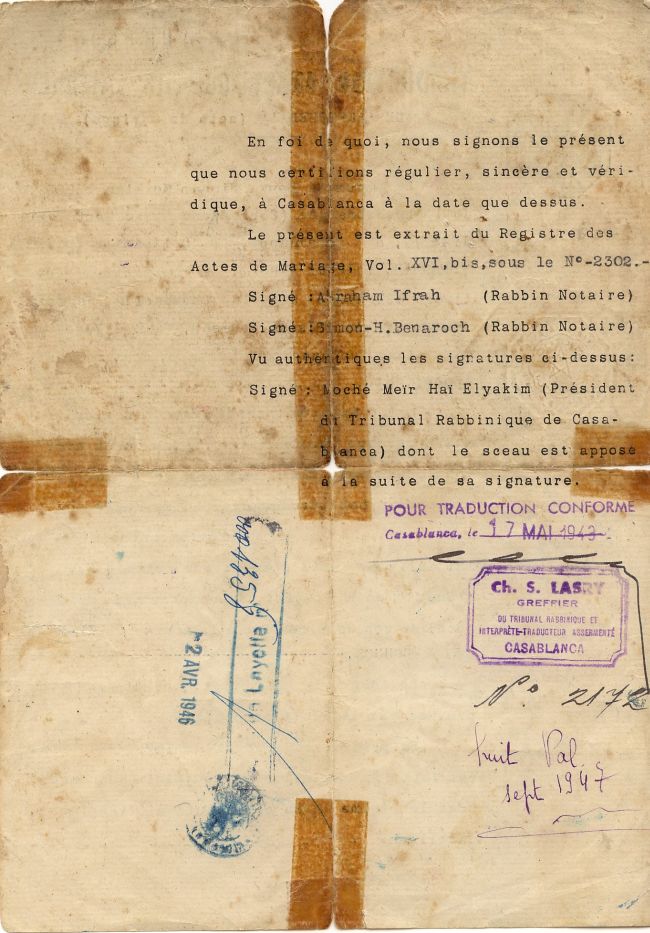 En foi de quoi, nous signons le présent
que nous certifions régulier, sincère et véri-
dique, à Casablanca à la date que dessus.
Le présent est extrait du Registre des
Actes de Mariage, Vol. XVI,bis,sous le N°-2302.-
Signé :Abraham Ifrah (Rabbin Notaire)
Signé :Simon-H.Benaroch (Rabbin Notaire)
Vu authentiques les signatures ci-dessus:
Signé : Moché Meïr Haï Elyakim (Président
du Tribunal Rabbinique de Casa-
blanca) dont le sceau est apposé
à la suite de sa signature.
POUR TRADUCTION CONFORME
Casablanca, le 17 MAI 1943
Ch. S. LASRY
GREFFIER
DU TRIBUNAL RABBINIQUE ET
INTERPRÈTE-TRADUCTEUR ASSERMENTÉ
CASABLANCA
N° 2172
sept 1947
2 AVR. 1946